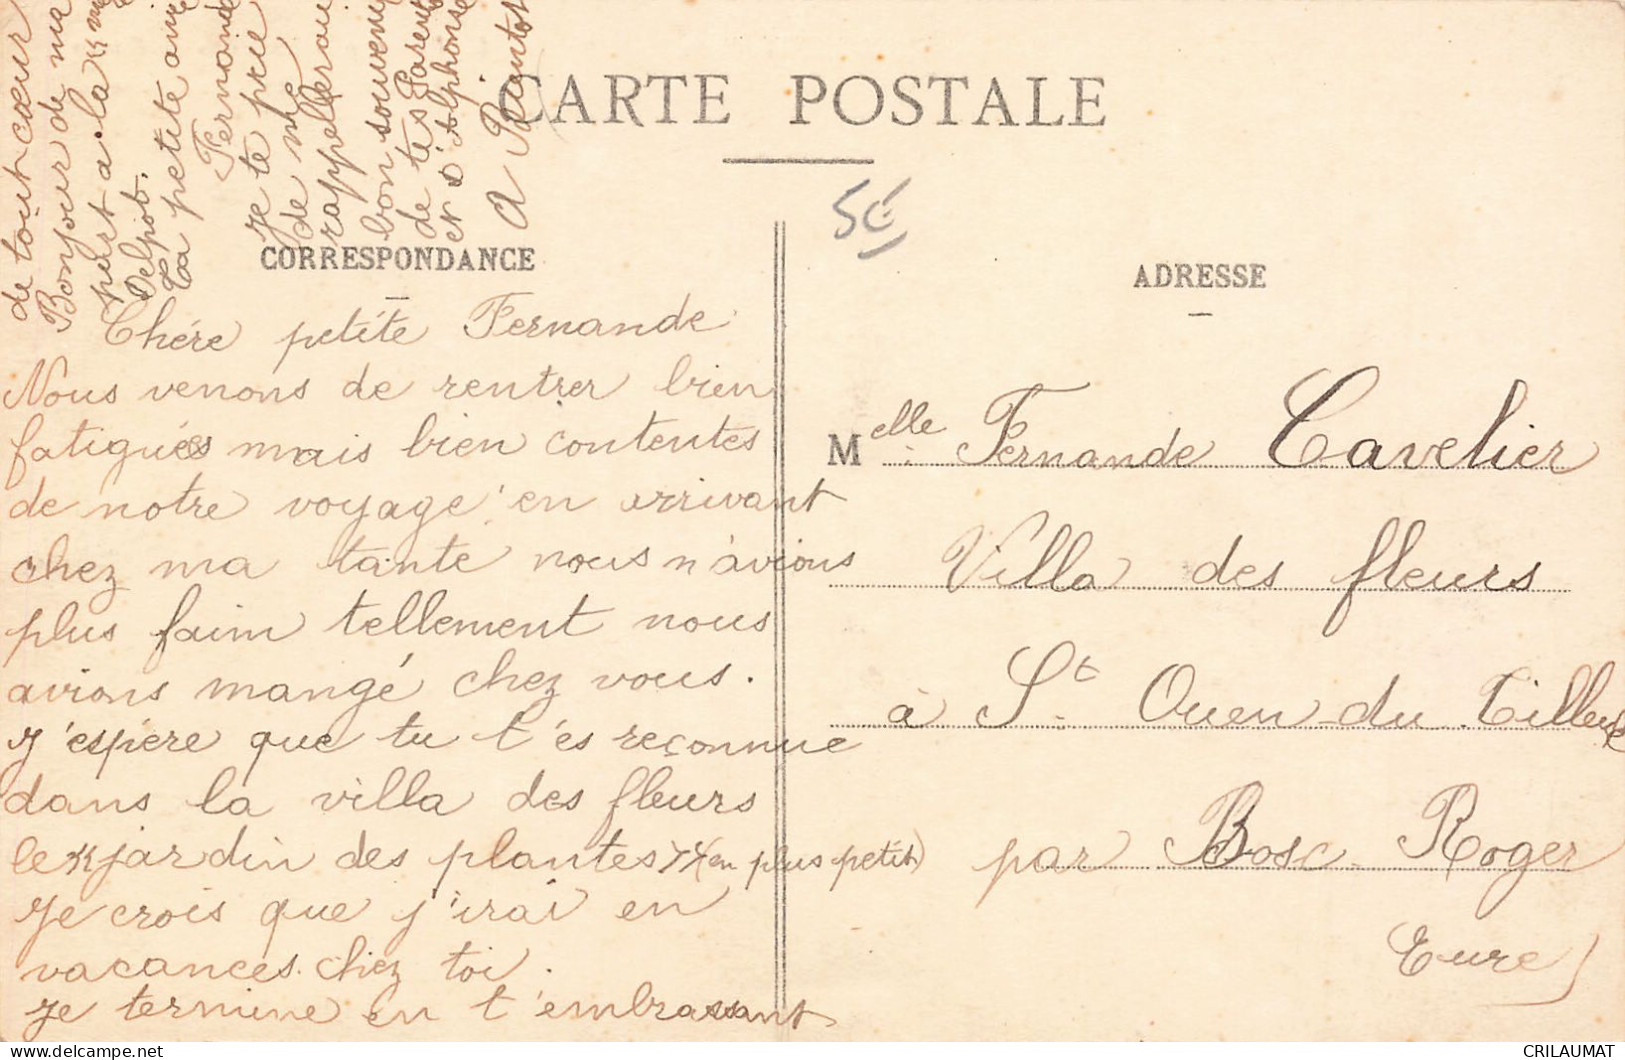 CARTE POSTALE
50
CORRESPONDANCE
ADRESSE
Chére petite Fernande
Nous venons de rentrer bien
fatiguées mais bien contentes
de notre voyage en arrivant
chez ma tante nous n'avions
plus faim tellement nous
avions mangé chez vous.
J'espère que tu t'es reconnue
dans la villa des fleurs
le "jardin des plantes" (en plus petit)
Je crois que j'irai en
vacances chez toi.
Je termine en t'embrassant
de tout cœur
Bonjour de ma
part a la
Delpot.
Ta petite amie
Fernande
Je te prie
de me
rappeller au
bon souvenir
de tes Parents
et d'Alphonse
Melle Fernande Cavelier
Villa des fleurs
à St Ouen du Tilleul
par Bosc Roger
Eure)
CRILAUMAT